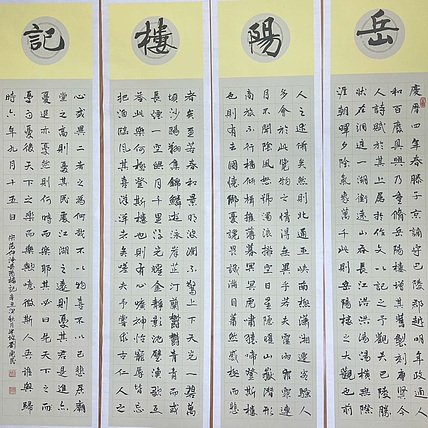 岳
慶曆四年春滕子京謫守巴陵郡越明年政通人
和百廢具興乃重脩岳陽樓增其舊制刻唐賢今
人詩賦於其上屬予作文以記之予觀夫巴陵勝
狀在洞庭一湖銜遠山吞長江浩浩湯湯橫無際
涯朝暉夕陰氣象萬千此則岳陽樓之大觀也前
陽
人之述備矣然則北通巫峽南極瀟湘遷客騷人
多會於此覽物之情得無異乎若夫霪雨霏霏連
月不開陰風怒號濁浪排空日星隱曜山嶽潛形
商旅不行檣傾楫摧薄暮冥冥虎嘯猿啼登斯樓
也則有去國懷鄉憂讒畏譏滿目蕭然感極而悲
樓
者矣至若春和景明波瀾不驚上下天光一碧萬
頃沙鷗翔集錦鱗游泳岸芷汀蘭鬱鬱青青而或
長煙一空皓月千里浮光耀金靜影沉璧漁歌互
答此樂何極登斯樓也則有心曠神怡寵辱皆忘
把酒臨風其喜洋洋者矣嗟夫予嘗求古仁人之
記
心或異二者之為何哉不以物喜不以己悲居廟
堂之高則憂其民處江湖之遠則憂其君是進亦
憂退亦憂然則何時而樂耶其必曰先天下之
憂而憂後天下之樂而樂歟噫微斯人吾誰與歸
時六年九月十五日